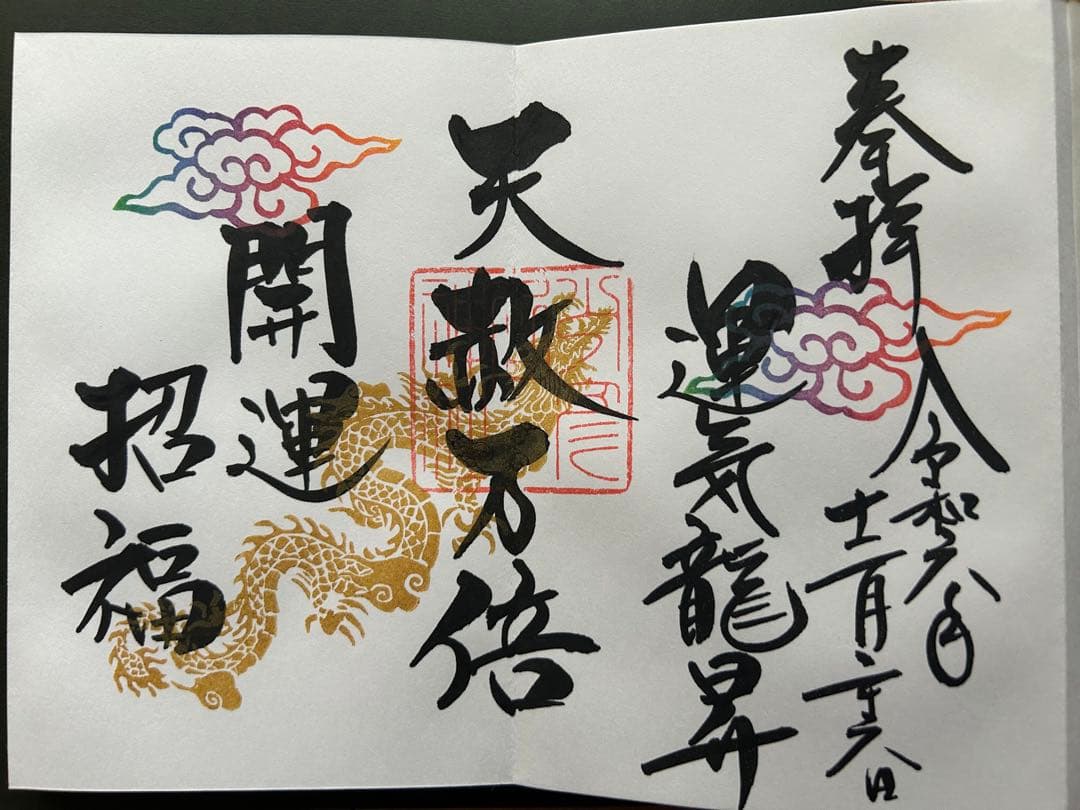 奉拝
令和六年
十二月二十六日
運気龍昇
天赦万倍
開運
招福